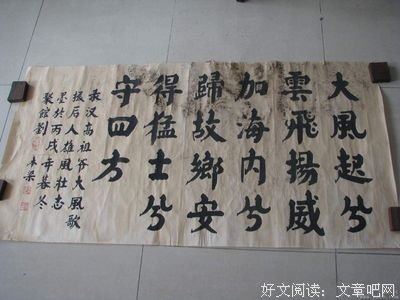 大風起兮
雲飛揚威
加海内兮
歸故鄉安
得猛士兮
守四方
汉高祖爷大風歌
后人雄風壮志
墨於丙戌年暮冬
劉
好文阅读：文章吧网